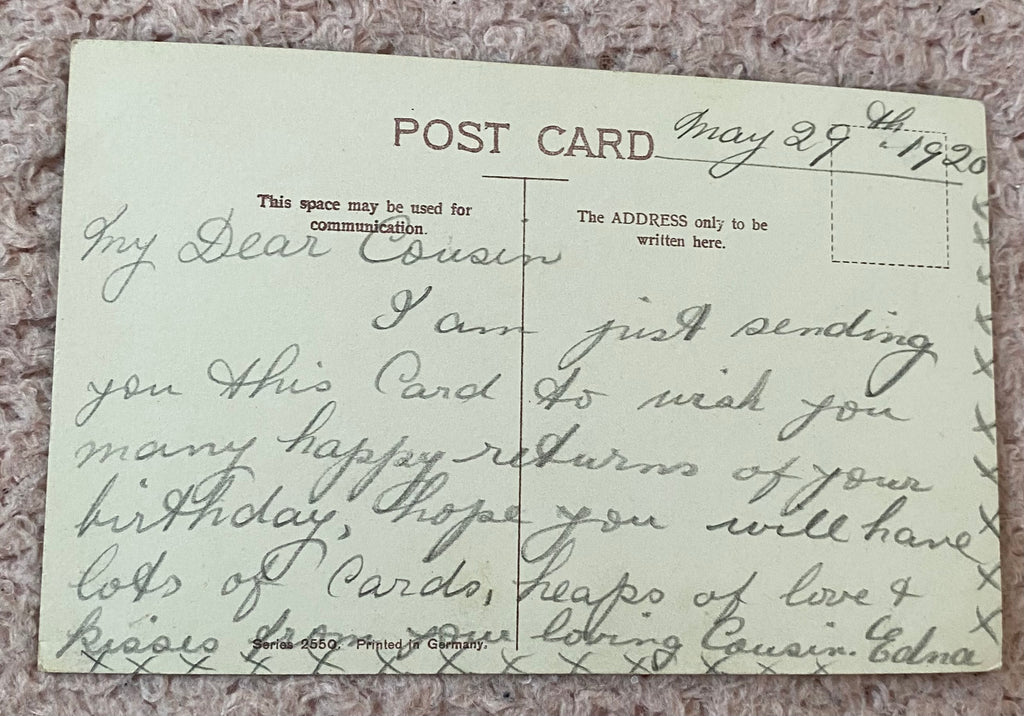 POST CARD May 29th. 1920
This space may be used for
communication.
The ADDRESS only to be
written here.
My Dear Cousin
I am just sending
you this Card to wish you
many happy returns of your
birthday, hope you will have
lots of Cards, heaps of love &
kisses from your loving Cousin. Edna
Series 2550. Printed in Germany.
x x x x x x x x x x x x x x x
x x x x x x x x x x